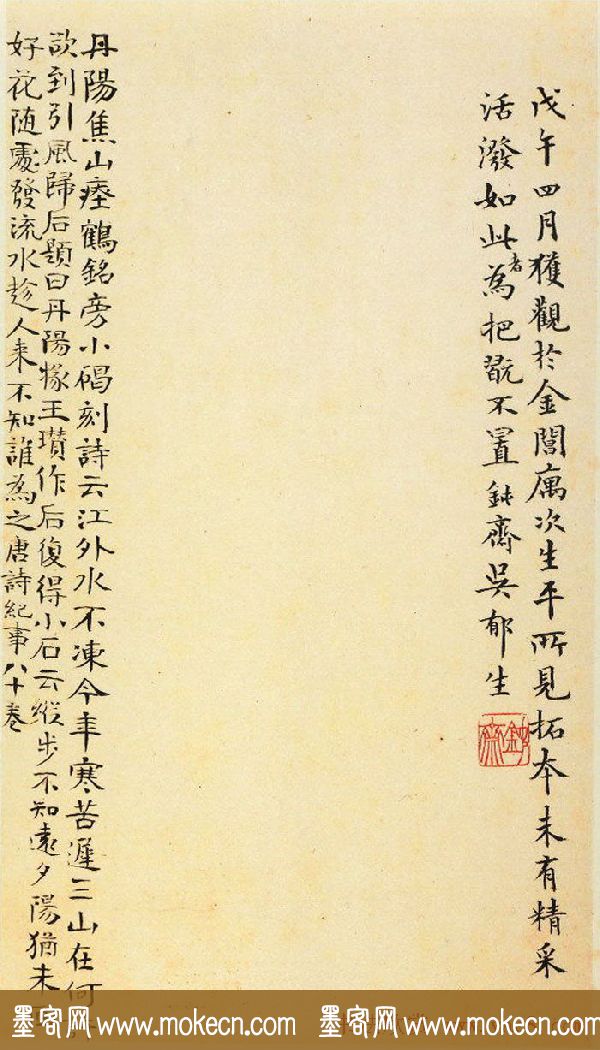 戊午四月獲觀於金閶寓次生平所見拓本未有精采
活潑如此者為把翫不置鈍齋吳郁生
鈍齋
丹陽焦山瘞鶴銘旁小碣刻詩云江外水不凍今年寒苦遲三山在何
欲到引風歸后題曰丹陽掾王瓚作后復得小石云縱步不知遠夕陽猶未
好花随處發流水趁人來不知誰為之唐詩紀事八十卷
墨客网 www.mokecn.com 墨客网 www.mokecn.com